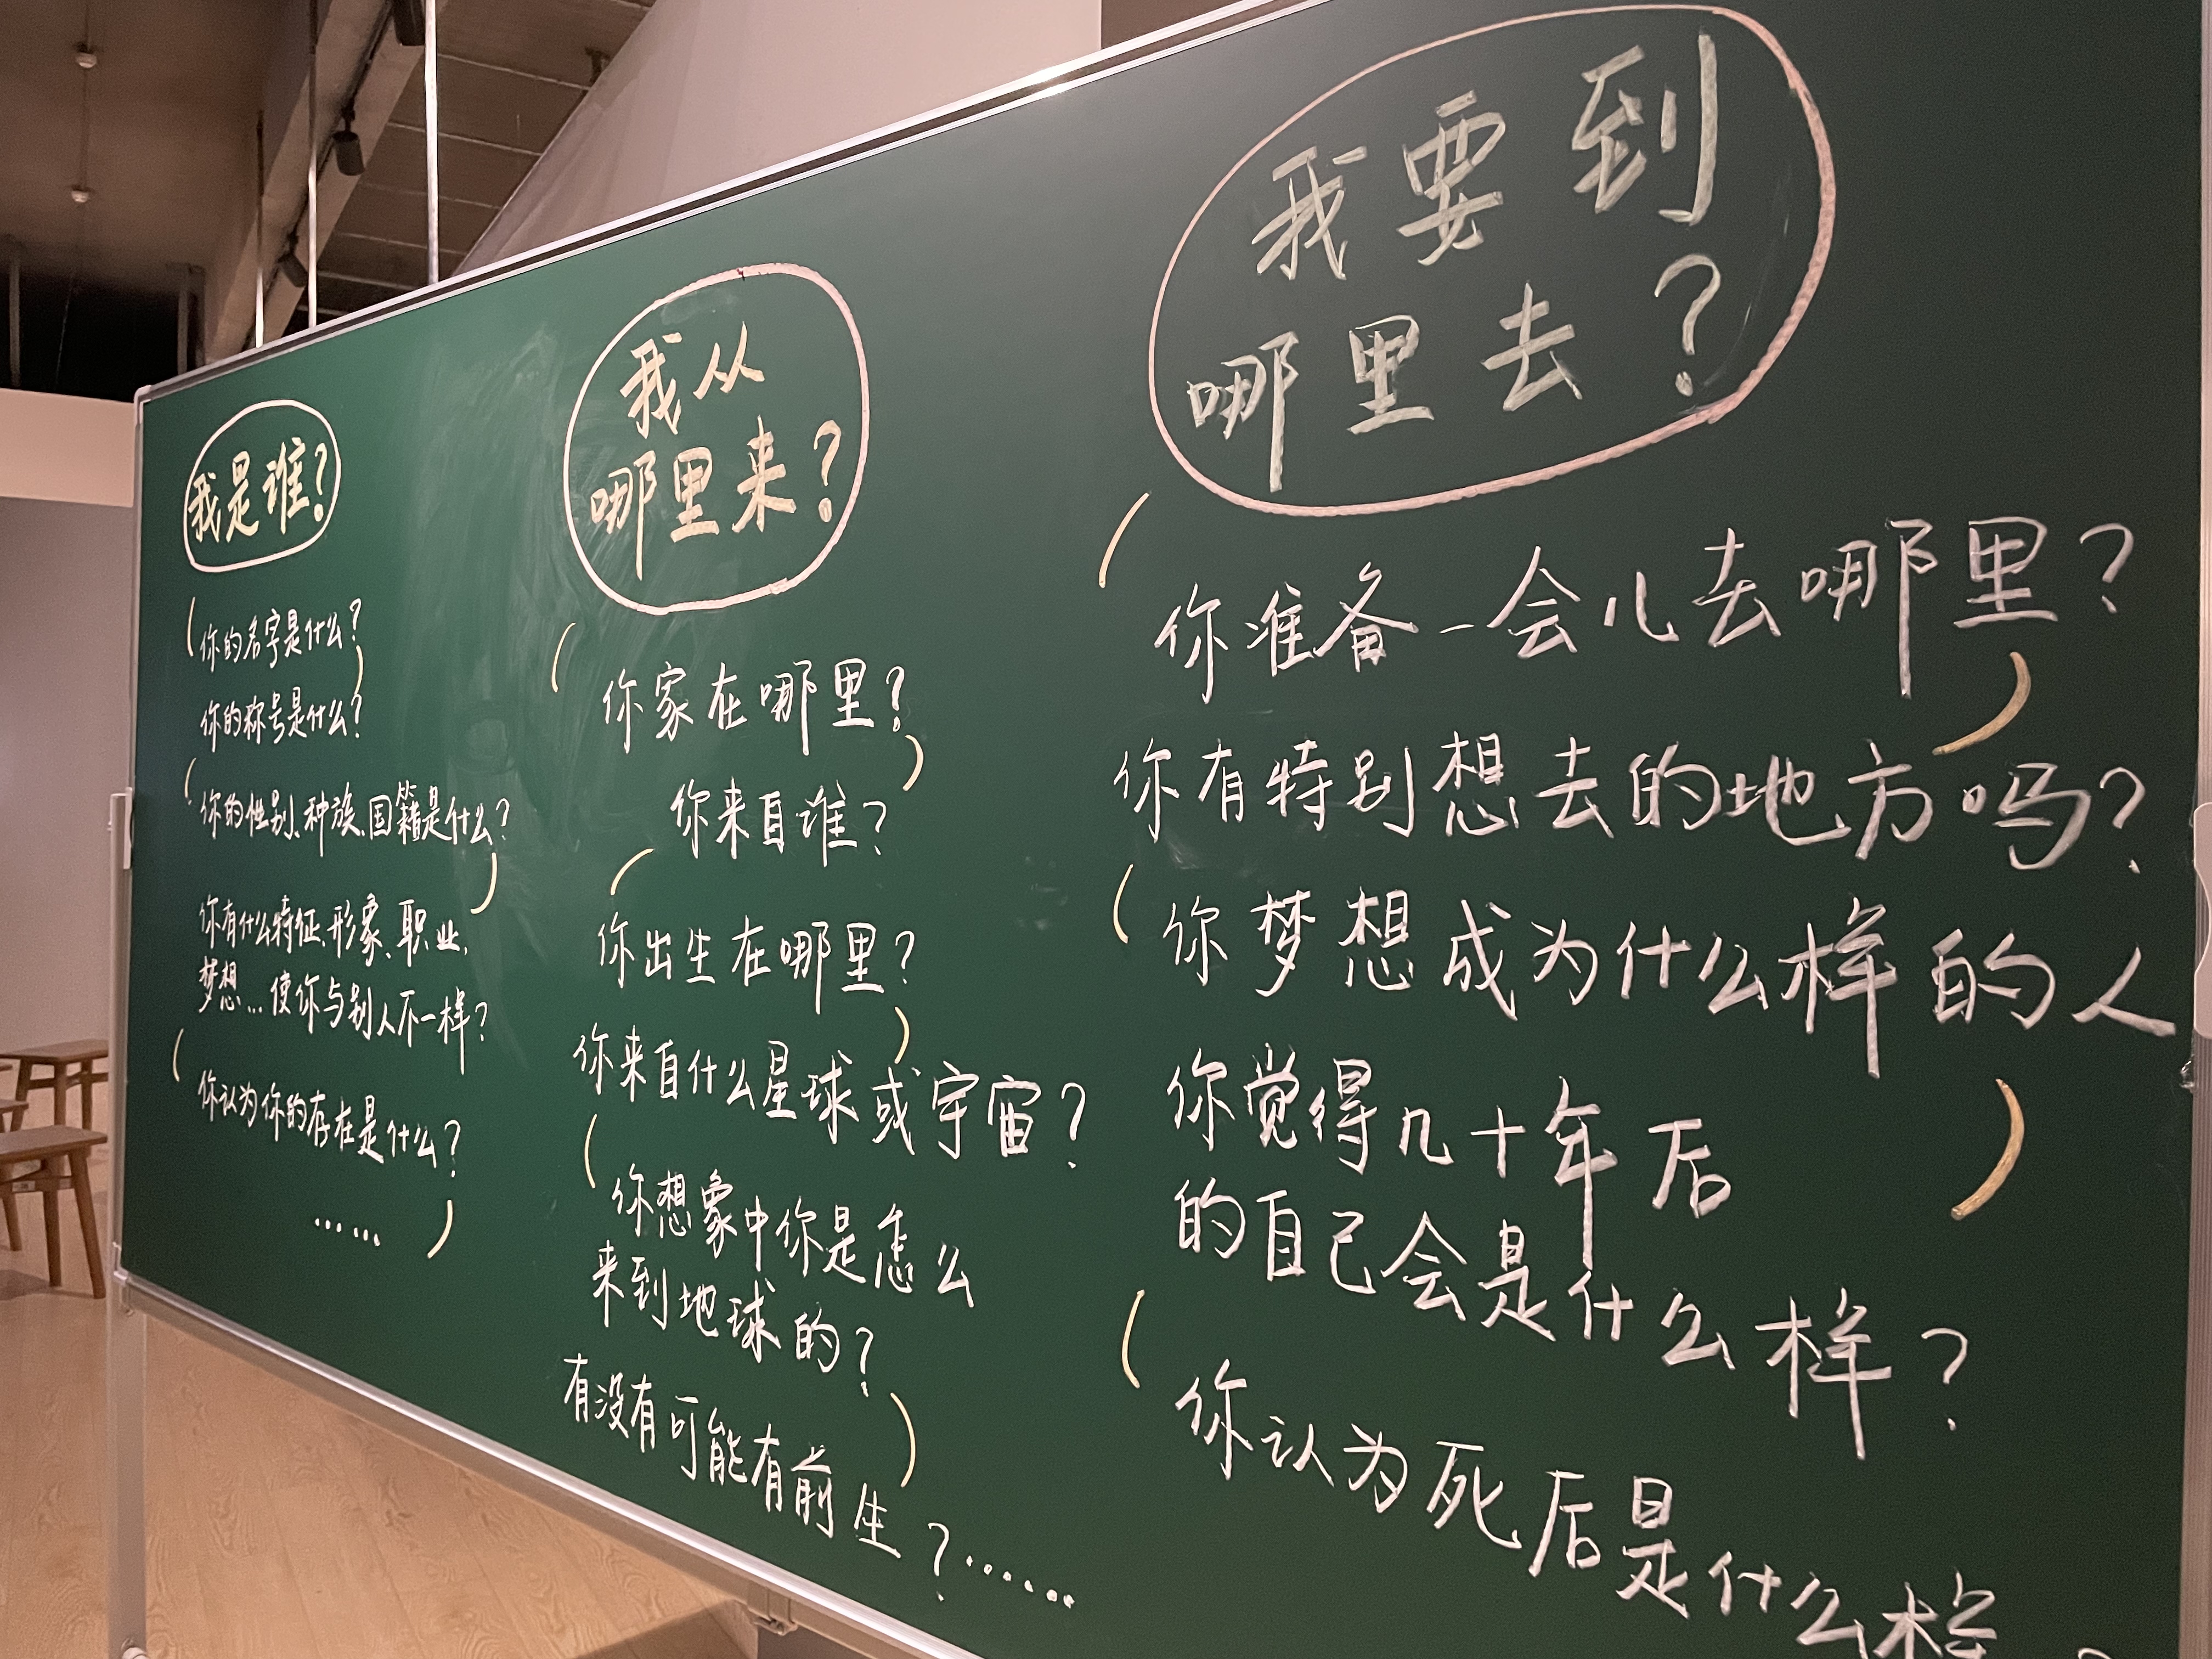 我是谁?
你的名字是什么?
你的称号是什么?
你的性别、种族、国籍是什么?
你有什么特征、形象、职业、
梦想…使你与别人不一样?
你认为你的存在是什么?
……
我从
哪里来?
你家在哪里?
你来自谁?
你出生在哪里?
你来自什么星球或宇宙?
你想象中你是怎么
来到地球的?
有没有可能有前生?……
我要到
哪里去?
你准备一会儿去哪里?
你有特别想去的地方吗?
你梦想成为什么样的人
你觉得几十年后
的自己会是什么样?
你认为死后是什么样?